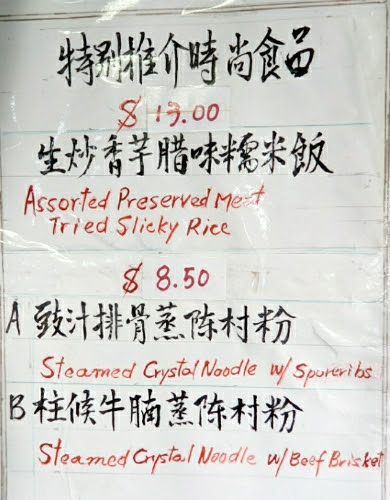 特别推介時尚食品
$ 13.00
生炒香芋腊味糯米飯
Assorted Preserved Meat
Tried Slicky Rice
$ 8.50
A 豉汁排骨蒸陈村粉
Steamed Crystal Noodle w/ Spareribs
B 柱候牛腩蒸陈村粉
Steamed Crystal Noodle w/ Beef Brisket